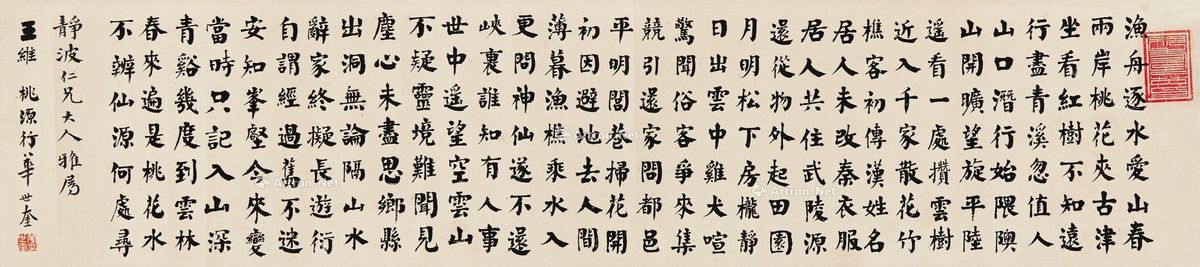 漁舟逐水愛山春
兩岸桃花夾古津
坐看紅樹不知遠
行盡青溪忽值人
山口潛行始隈隩
山開曠望旋平陸
遥看一處攢雲樹
近入千家散花竹
樵客初傳漢姓名
居人未改秦衣服
居人共住武陵源
還從物外起田園
月明松下房櫳靜
日出雲中雞犬喧
驚聞俗客爭來集
競引還家問都邑
平明閭巷掃花開
初因避地去人間
薄暮漁樵乘水入
更問神仙遂不還
峽裏誰知有人事
世中遥望空雲山
不疑靈境難聞見
塵心未盡思鄉縣
出洞無論隔山水
辭家終擬長遊衍
自謂經過舊不迷
安知峯壑今來變
當時只記入山深
青谿幾度到雲林
春來遍是桃花水
不辨仙源何處尋
靜波仁兄大人雅屬
王維 桃源行 華世奎
Artron.Net
Artron.Net